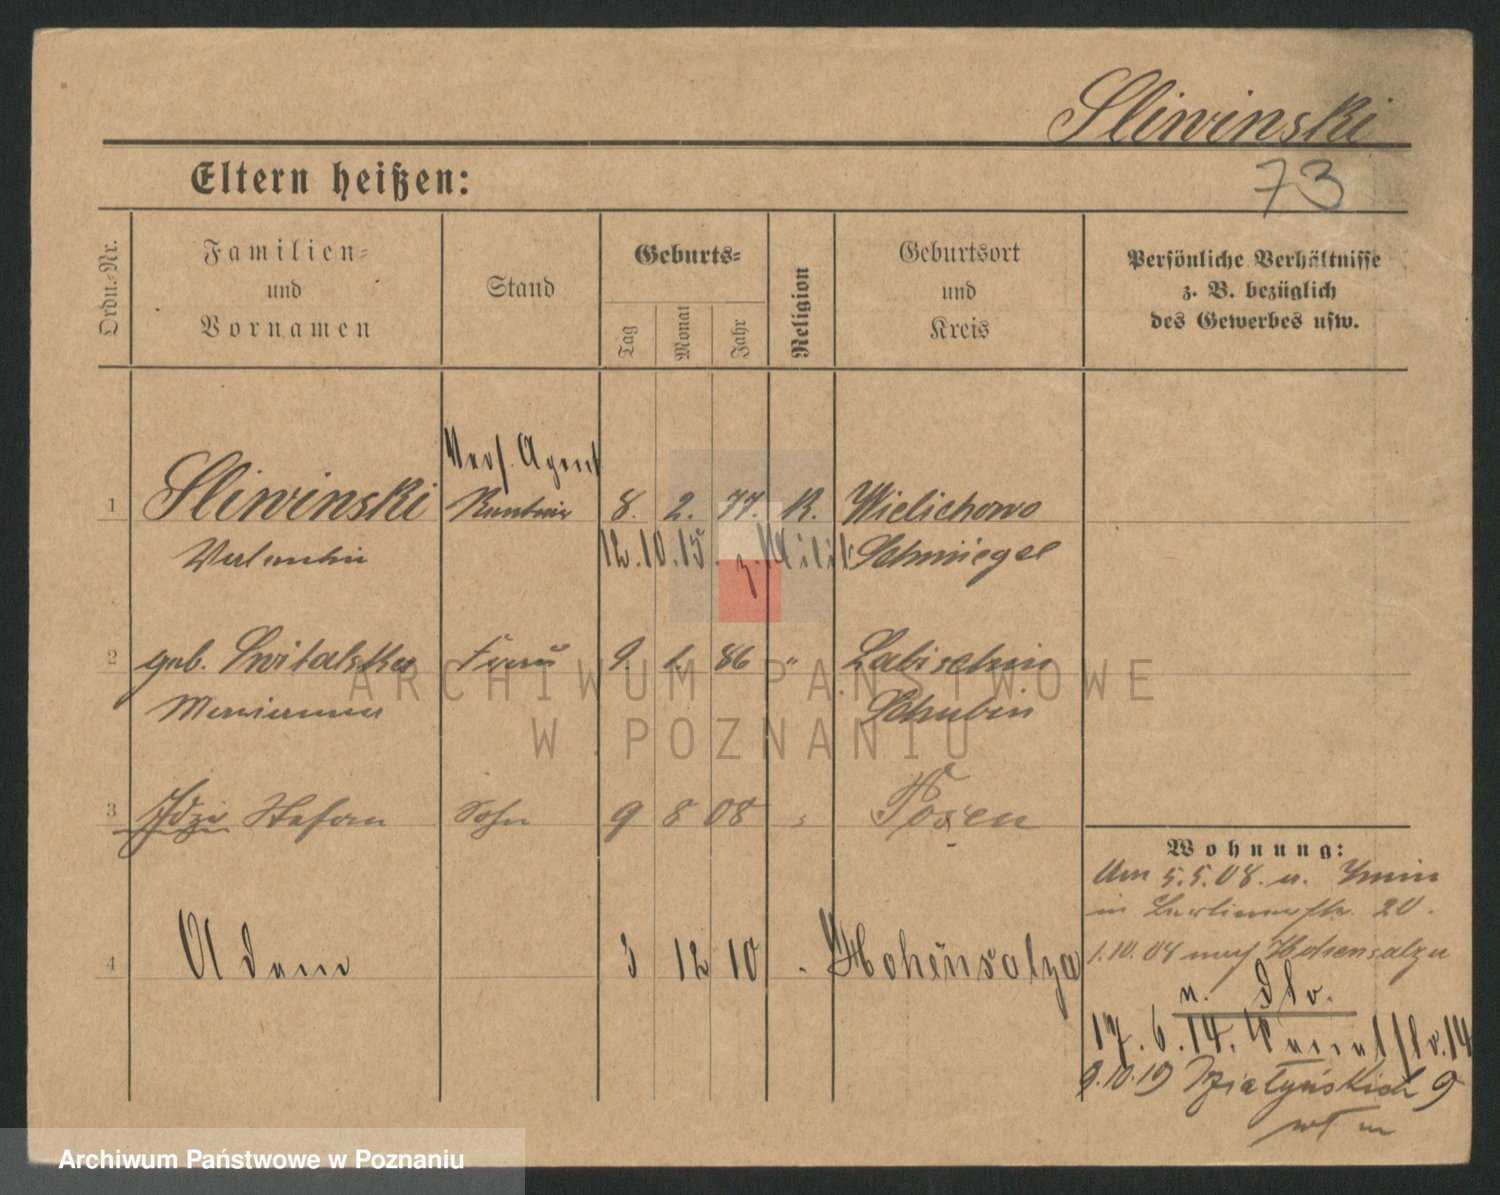 Sliwinski
73
Eltern heißen:
Ordn.-Nr.
Familien-
und
Vornamen
Stand
Geburts-
Tag
Monat
Jahr
Religion
Geburtsort
und
Kreis
Persönliche Verhältnisse
z. B. bezüglich
des Gewerbes usw.
Vers. Agent
1 Sliwinski Rentier 8. 2. 77. K. Wielichowo
Valentin 12.10.15. z. Milit. Schmiegel
2 geb. Switalska Frau 9. 1. 86 " Labischin
Marianna Schubin
3 Idzi Stefan Sohn 9 8 08 Posen
4 Adam 3 12 10 Hohensalza
Wohnung:
Am 5.5.08. a.
in Berlinerstr. 20.
1.10.08 nach Hohensalza
17.6.14. 14
9.10.19 Działyńskich 9
ARCHIWUM PAŃSTWOWE
W POZNANIU
Archiwum Państwowe w Poznaniu